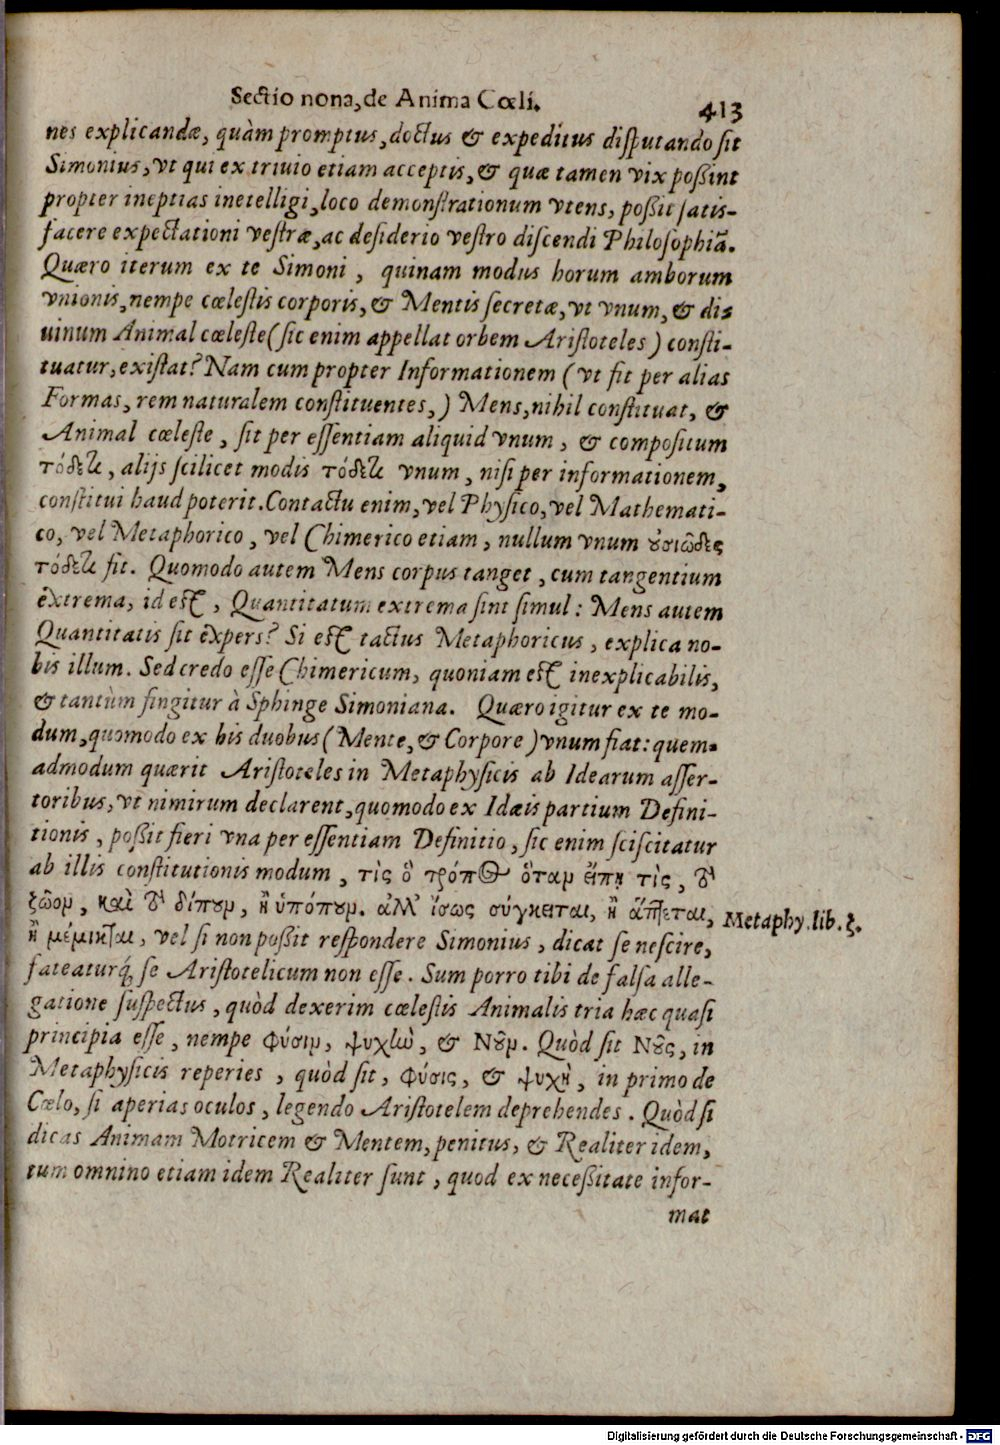 Sectio nona, de Anima Cœli. 413
nes explicandæ, quàm promptus, doctus & expeditus disputando sit
Simonius, vt qui ex triuio etiam acceptis, & quæ tamen vix poßint
propter ineptias inetelligi, loco demonstrationum vtens, poßit satis-
facere expectationi vestræ, ac desiderio vestro discendi Philosophiã.
Quæro iterum ex te Simoni, quinam modus horum amborum
vnionis, nempe cœlestis corporis, & Mentis secretæ, vt vnum, & di-
uinum Animal cœleste (sic enim appellat orbem Aristoteles) consti-
tuatur, existat? Nam cum propter Informationem (vt fit per alias
Formas, rem naturalem constituentes,) Mens, nihil constituat, &
Animal cœleste, sit per essentiam aliquid vnum, & compositum
τόδετι, alijs scilicet modis τόδετι vnum, nisi per informationem,
constitui haud poterit. Contactu enim, vel Physico, vel Mathemati-
co, vel Metaphorico, vel Chimerico etiam, nullum vnum ȣσιῶδες
τόδετι fit. Quomodo autem Mens corpus tanget, cum tangentium
extrema, id est, Quantitatum extrema sint simul: Mens autem
Quantitatis sit expers? Si est tactus Metaphoricus, explica no-
bis illum. Sed credo esse Chimericum, quoniam est inexplicabilis,
& tantùm fingitur à Sphinge Simoniana. Quæro igitur ex te mo-
dum, quomodo ex his duobus (Mente, & Corpore) vnum fiat: quem-
admodum quærit Aristoteles in Metaphysicis ab Idearum asser-
toribus, vt nimirum declarent, quomodo ex Idæis partium Defini-
tionis, poßit fieri vna per essentiam Definitio, sic enim sciscitatur
ab illis constitutionis modum, τὶς ὁ τρόπος ὅταν εἴπῃ τὶς, τὸ
ζῶον, καὶ τὸ δίπουν, ἢ ὑπόπουν. ἀλλ' ἴσως σύγκειται, ἢ ἅπτεται,
Metaphy. lib. ζ.
ἢ μέμικται, vel si non poßit respondere Simonius, dicat se nescire,
fateaturq́; se Aristotelicum non esse. Sum porro tibi de falsa alle-
gatione suspectus, quòd dexerim cœlestis Animalis tria hæc quasi
principia esse, nempe φύσιν, ψυχὼ, & Νȣ̃ν. Quòd sit Νȣ̃ς, in
Metaphysicis reperies, quòd sit, φύσις, & ψυχὴ, in primo de
Cœlo, si aperias oculos, legendo Aristotelem deprehendes. Quòd si
dicas Animam Motricem & Mentem, penitus, & Realiter idem,
tum omnino etiam idem Realiter sunt, quod ex neceßitate infor-
mat
Digitalisierung gefördert durch die Deutsche Forschungsgemeinschaft - DFG